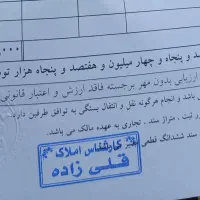 ۰,۰۰۰
صد و پنجاه و چهار میلیون و هفتصد و پنجاه هزار
ارزیابی بدون مهر برجسته فاقد ارزش و اعتبار قانونی
باشد و انجام هرگونه نقل و انتقال بستگی به توافق طرفین دارد
ثبت ، متراژ سند ، تجاری به عهده مالک می باشد.
سند ششدانگ قطعی
کارشناس املاک
قلی زاده